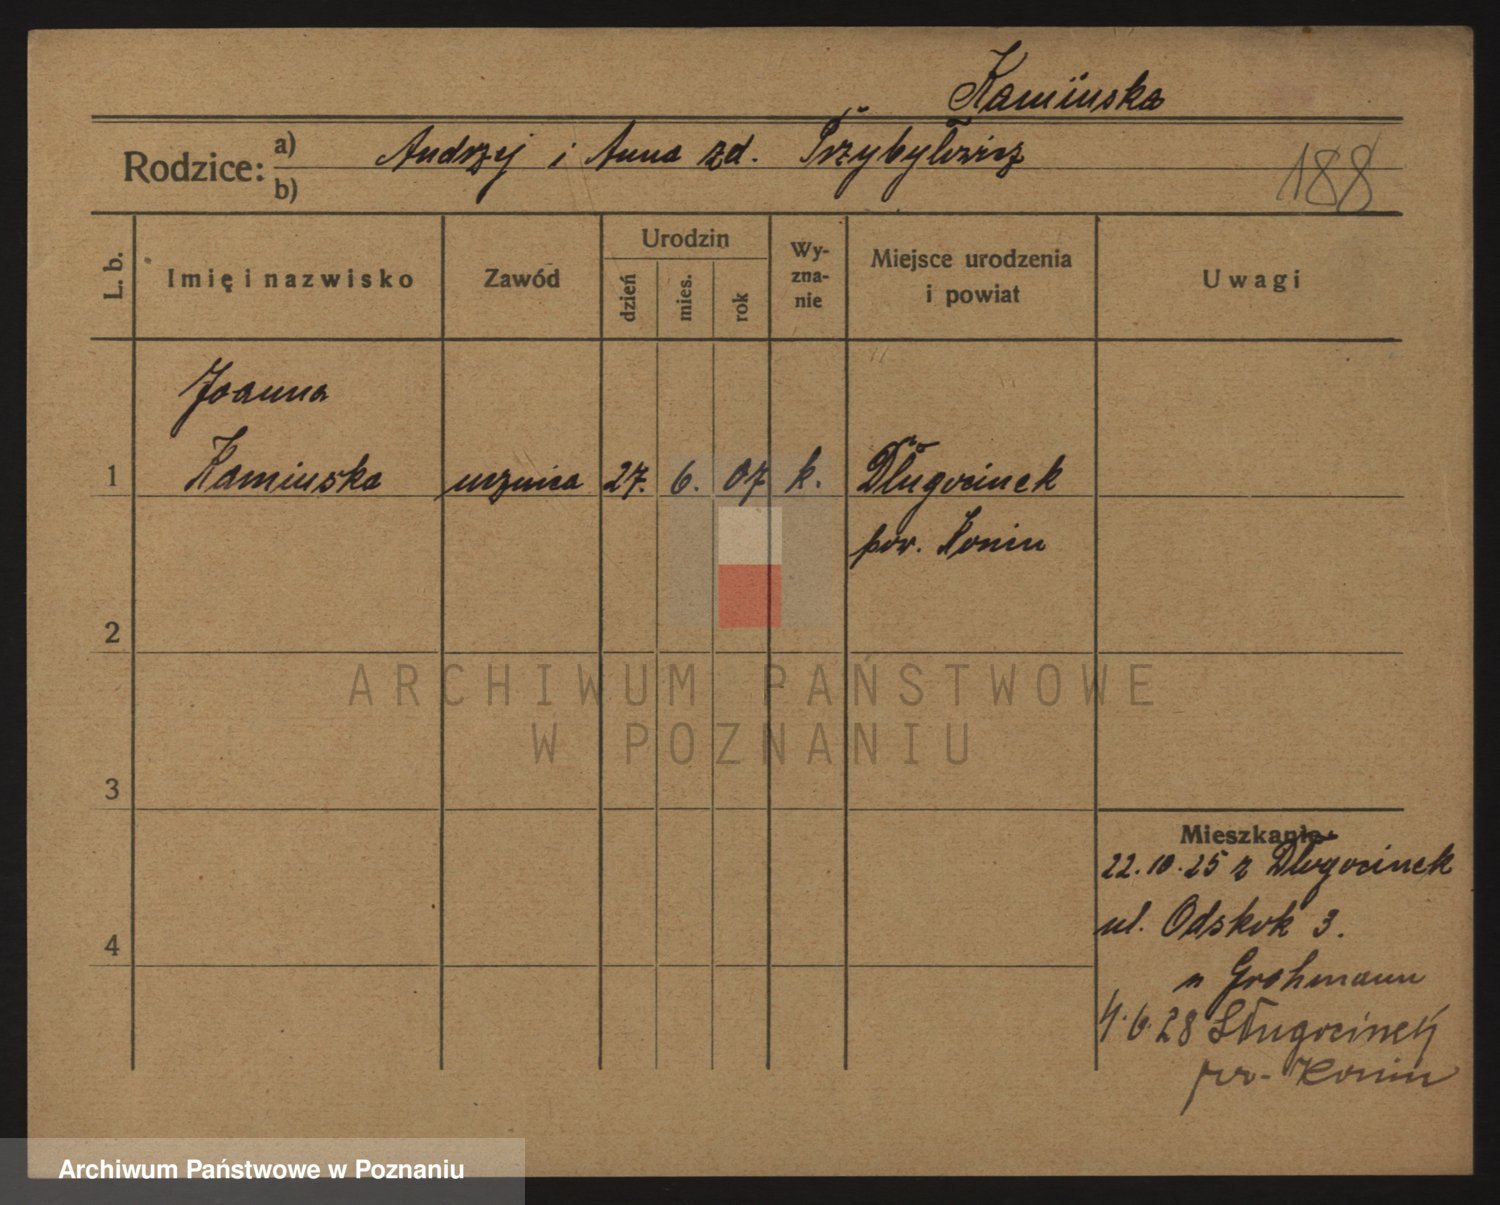 Kamińska
Rodzice: a) Andrzej i Anna zd. Przybyłowicz
b)
188
L. b. Imię i nazwisko Zawód Urodzin dzień mies. rok Wy-zna-nie Miejsce urodzenia i powiat Uwagi
Joanna
1 Kamińska ucznica 27. 6. 07 k. Długocinek
pow. Konin
2
ARCHIWUM PAŃSTWOWE
W POZNANIU
3
Mieszkanie
22.10.25 z Długocinek
4 ul. Odskok 3.
u Grohmann
4.6.28 Sługocinek
pow. Konin
Archiwum Państwowe w Poznaniu